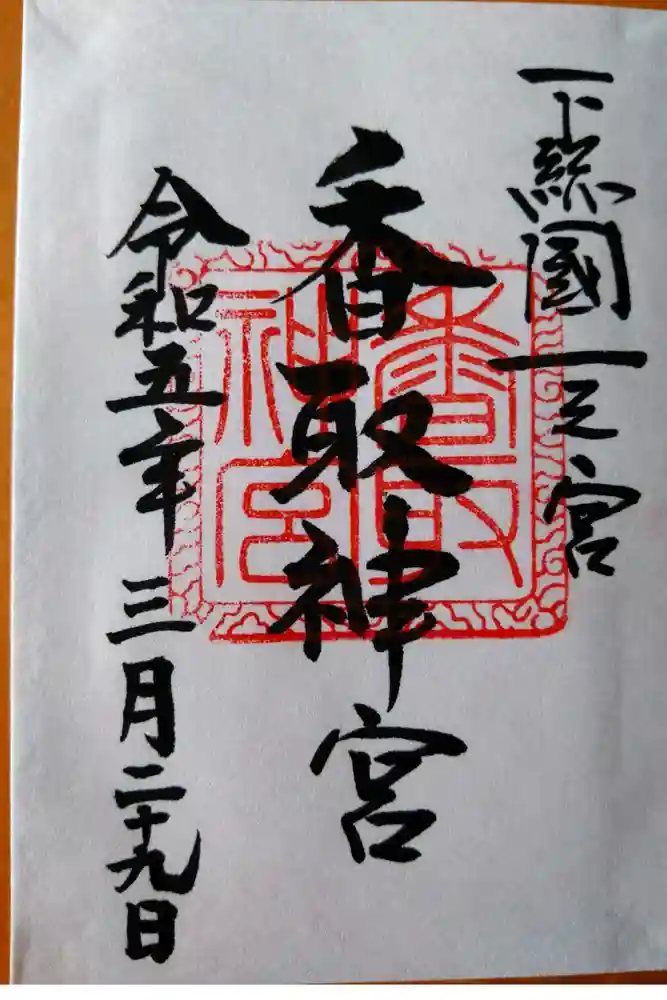 下総國一之宮
香取神宮
香取神宮
令和五年三月二十九日